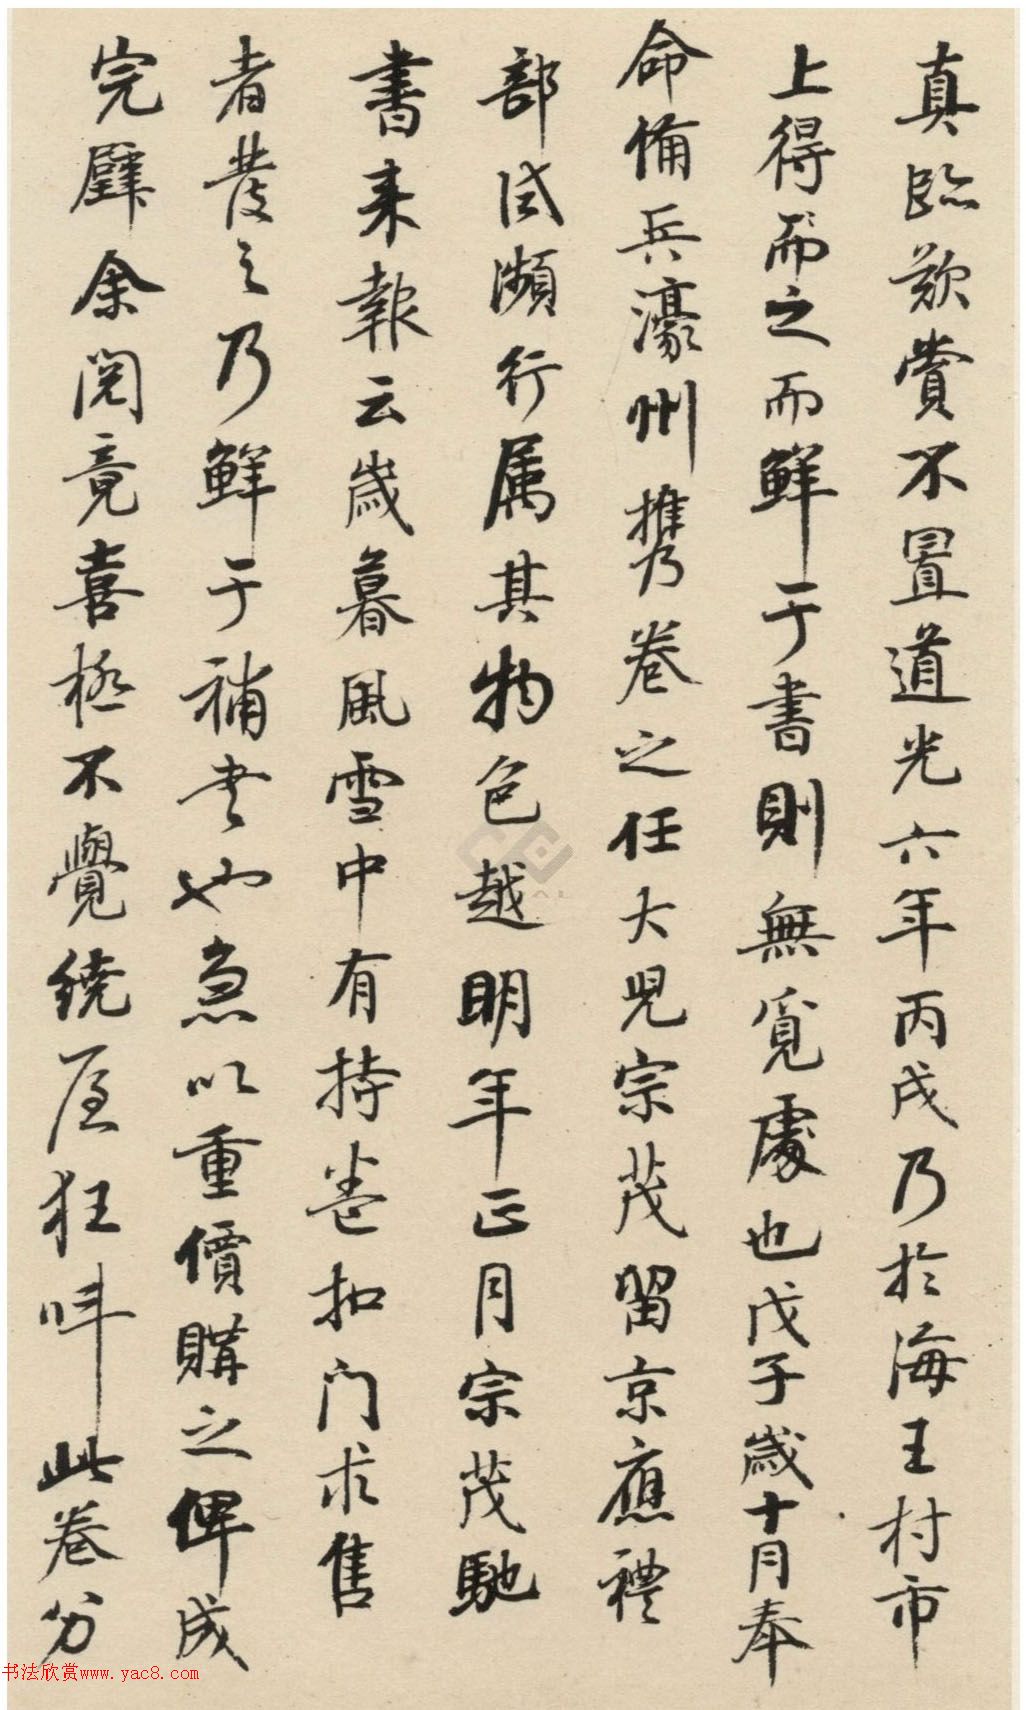 真臨歎賞不置道光六年丙戌乃於海王村市
上得而之而鮮于書則無覓處也戊子歲十月奉
命備兵濠州攜卷之任大兒宗茂留京應禮
部試瀕行属其物色越明年正月宗茂馳
書来報云歲暮風雪中有持卷扣门求售
者發之乃鮮于補書也急以重價購之俾成
完璧余閱竟喜極不覺繞屋狂呌此卷分
书法欣赏www.yac8.com